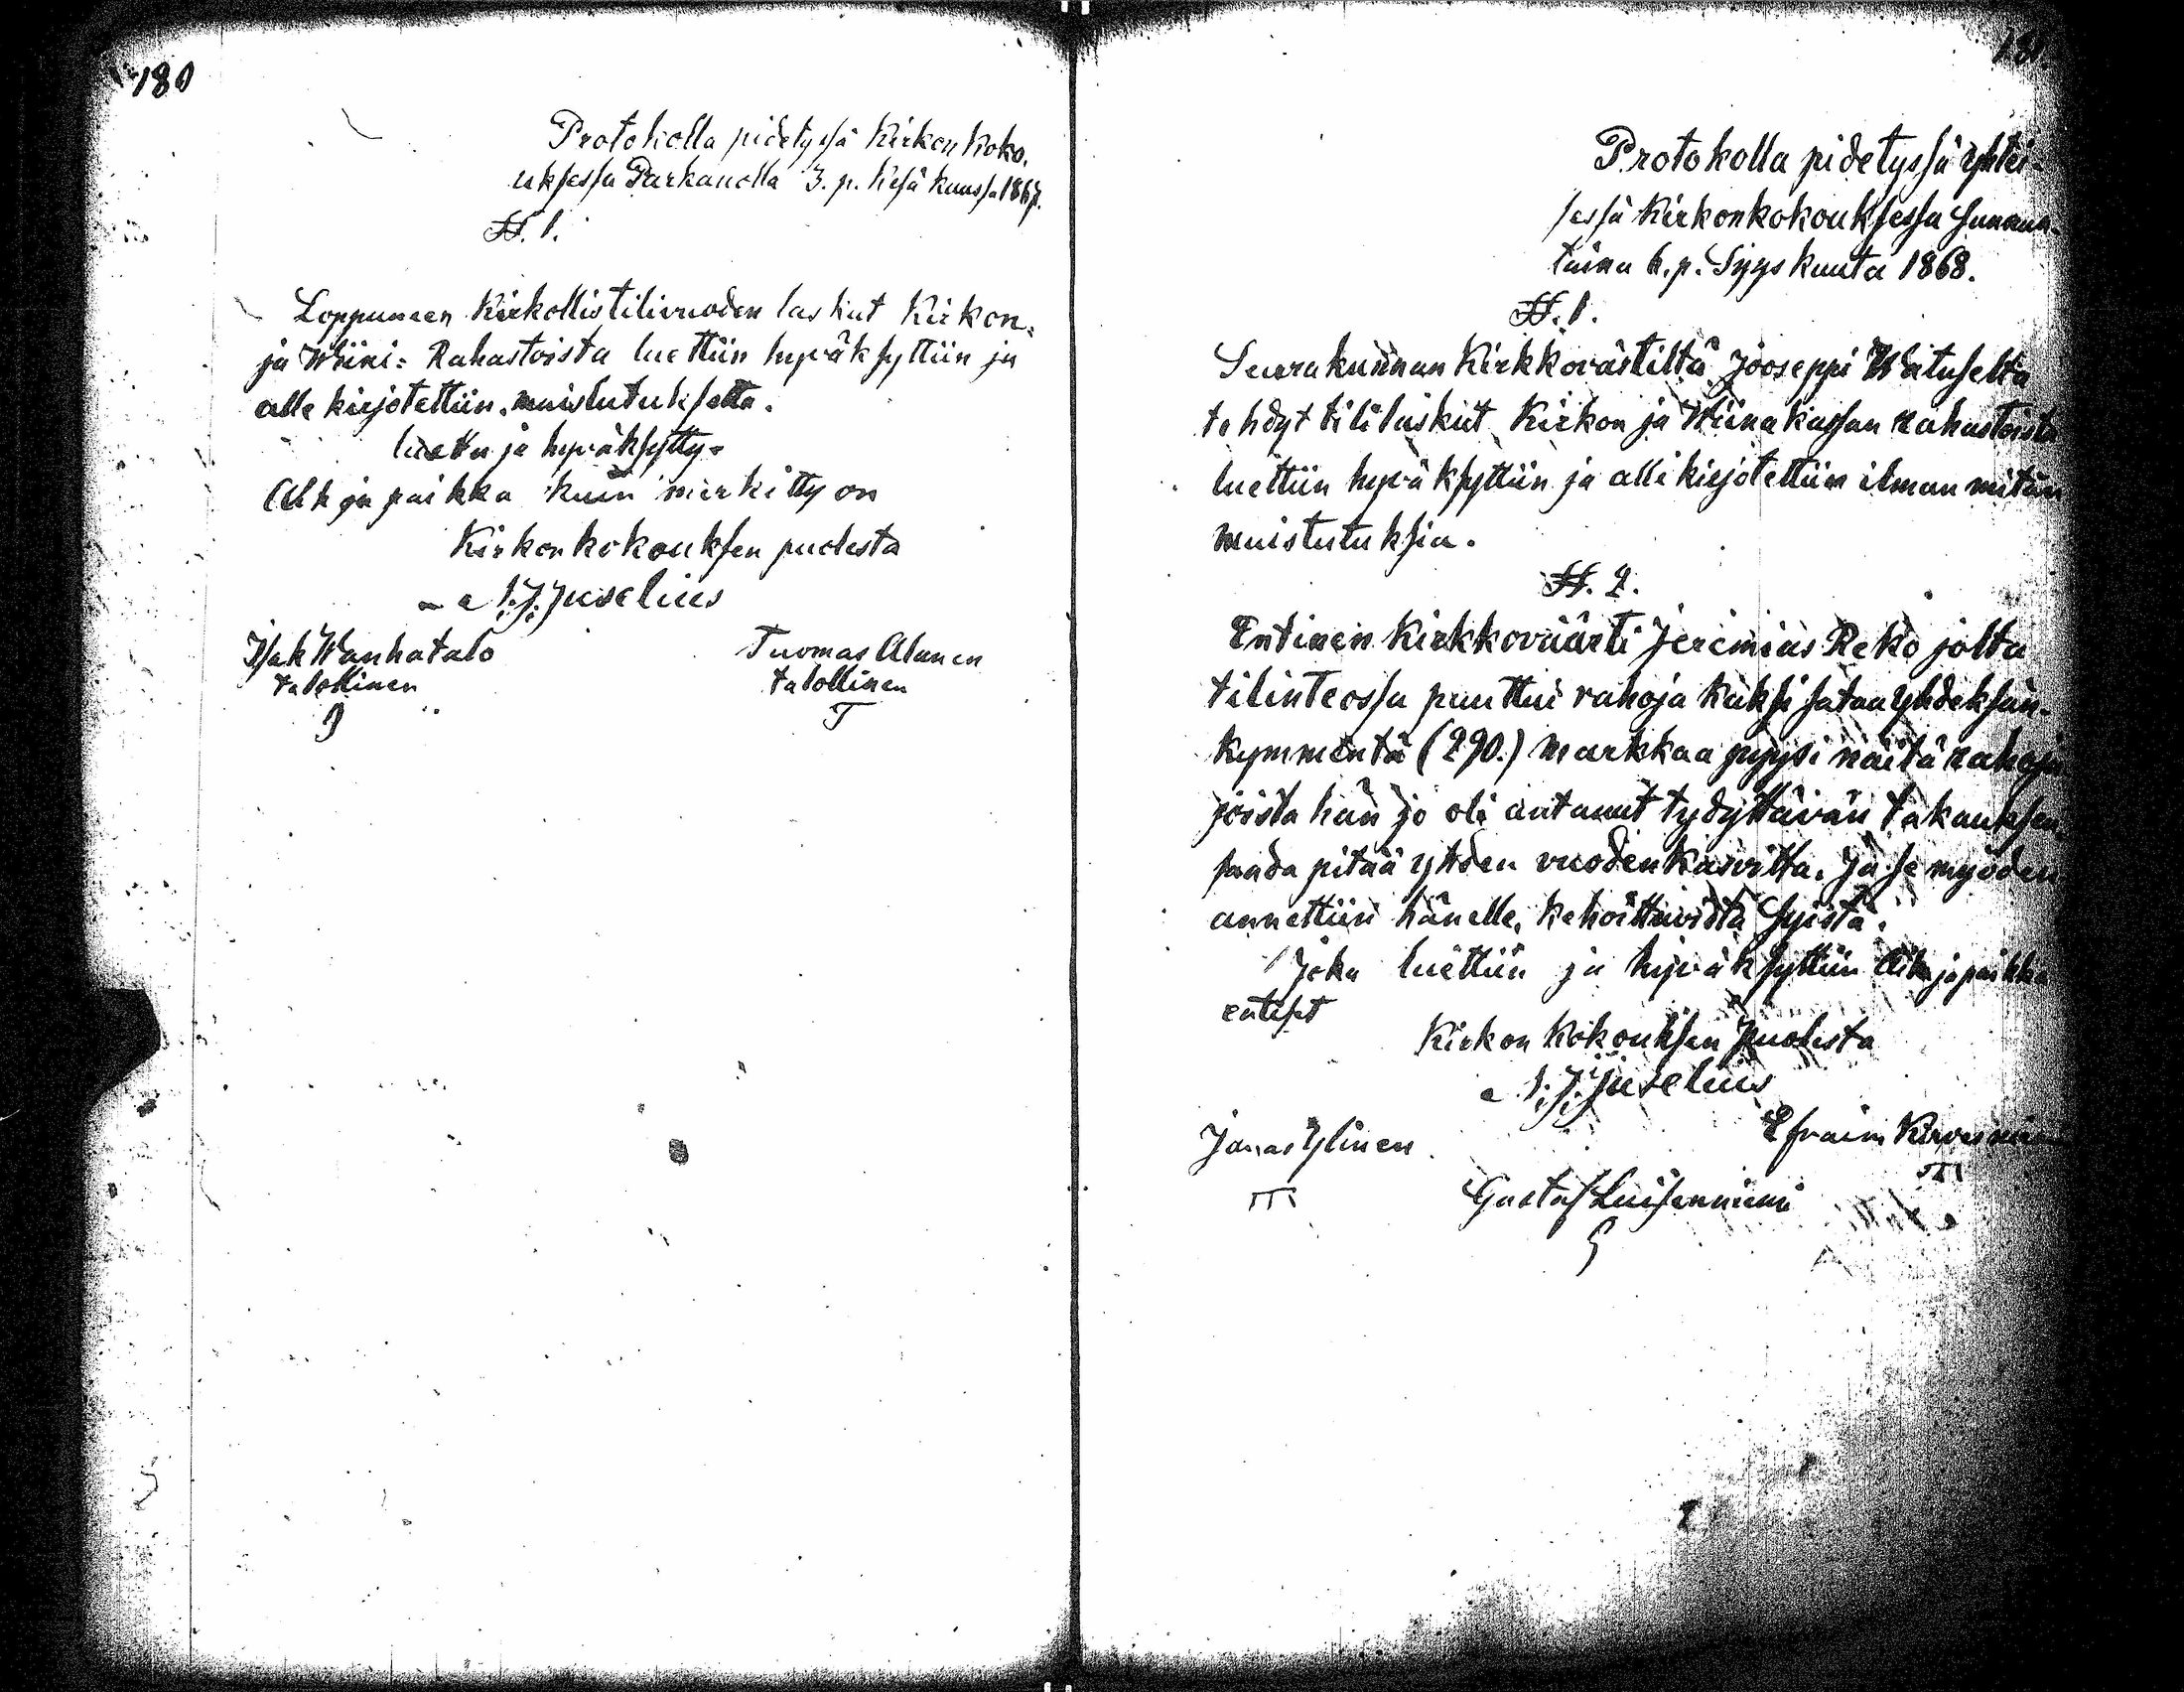 180
Protokolla pidetyssä Kirkon koko-
uksessa Parkanolla 3. p. Kesä kuussa 1867.
§. 1.
Loppuneen Kirkollis tilivuoden laskut Kirkon-
ja Wiini- Rahastoista luettiin hyväksyttiin ja
alle kirjotettiin, muistutuksetta.
luettu ja hyväksytty-
Aik ja paikka kuin merkitty on
Kirkon kokouksen puolesta
I. J. Juselius
Isak Wanhatalo
Tuomas Alanen
talollinen
talollinen
I
T
181.
Protokolla pidetyssä yhtei-
sessä Kirkonkokouksessa sunnun-
taina 6. p. Syyskuuta 1868.
§. 1.
Seurakunnan Kirkkovärtiltä Jooseppi Watuselta
tehdyt tililaskut Kirkon ja Wiinakassan rahastoista
luettiin hyväksyttiin ja alle kirjotettiin ilman mitän
muistutuksia.
§. 2.
Entinen Kirkkoväärti Jeremias Reko jolta
tilinteossa puuttui rahoja kaksi sataa yhdeksän-
kymmentä (290.) markkaa pyysi näitä rahoja
joista hän jo oli antanut tydyttävän takauksen
saada pitää yhden vuoden kasvitta. Ja se myöden
annettiin hänelle, kehoittavista syistä.
Joka luettiin ja hyväksyttiin Aika ja paikka
Kirkon Kokouksen Puolesta
I. J. Juselius
Jonas Ylinen
Efraim
Gustaf Luisenniemi
G